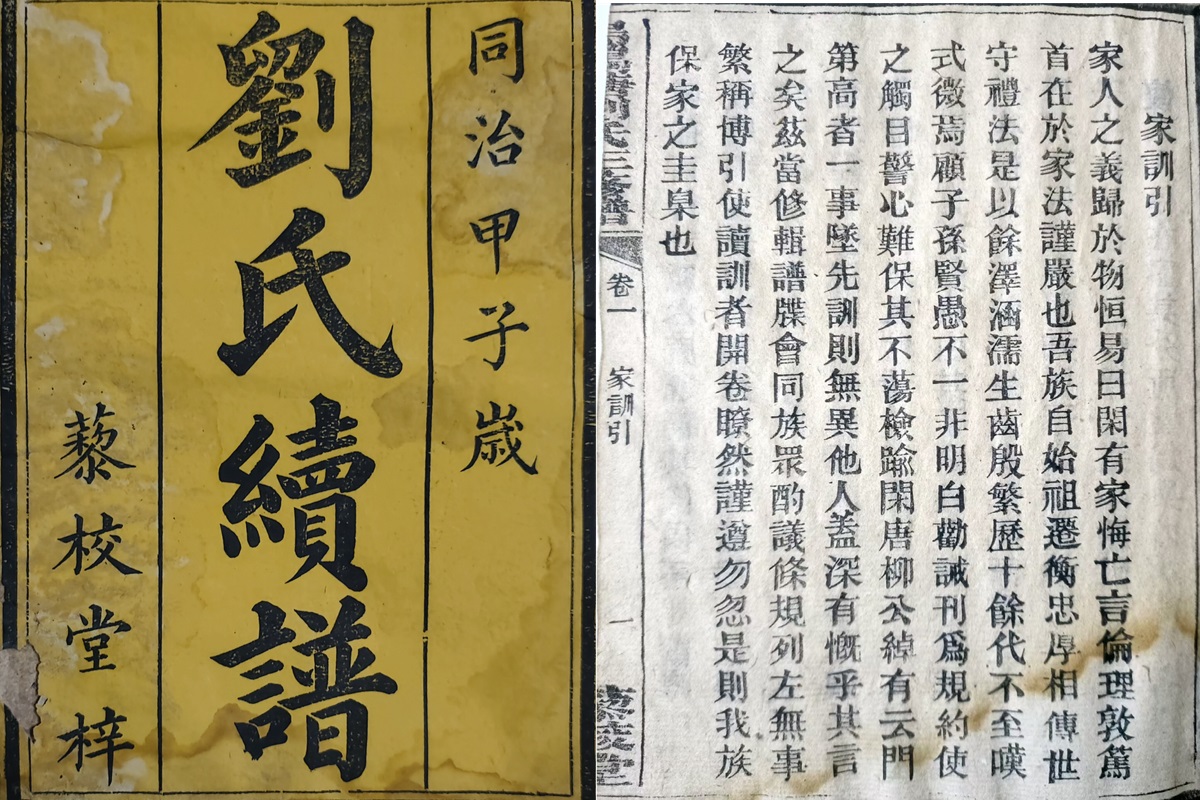 同治甲子歲
劉氏續譜
藜校堂梓
家訓引
家人之義歸於物恒易曰閑有家悔亡言倫理敦篤
首在於家法謹嚴也吾族自始祖遷衡忠厚相傳世
守禮法是以餘澤涵濡生齒殷繁歷十餘代不至嘆
式微焉顧子孫賢愚不一非明白勸誡刊爲規約使
之觸目警心難保其不蕩檢踰閑唐柳公綽有云門
第高者一事墜先訓則無異他人蓋深有慨乎其言
之矣茲當修輯譜牒會同族眾酌議條規列左無事
繁稱博引使讀訓者開卷瞭然謹遵勿忽是則我族
保家之圭臬也
劉氏三修譜
卷一
家訓引
一